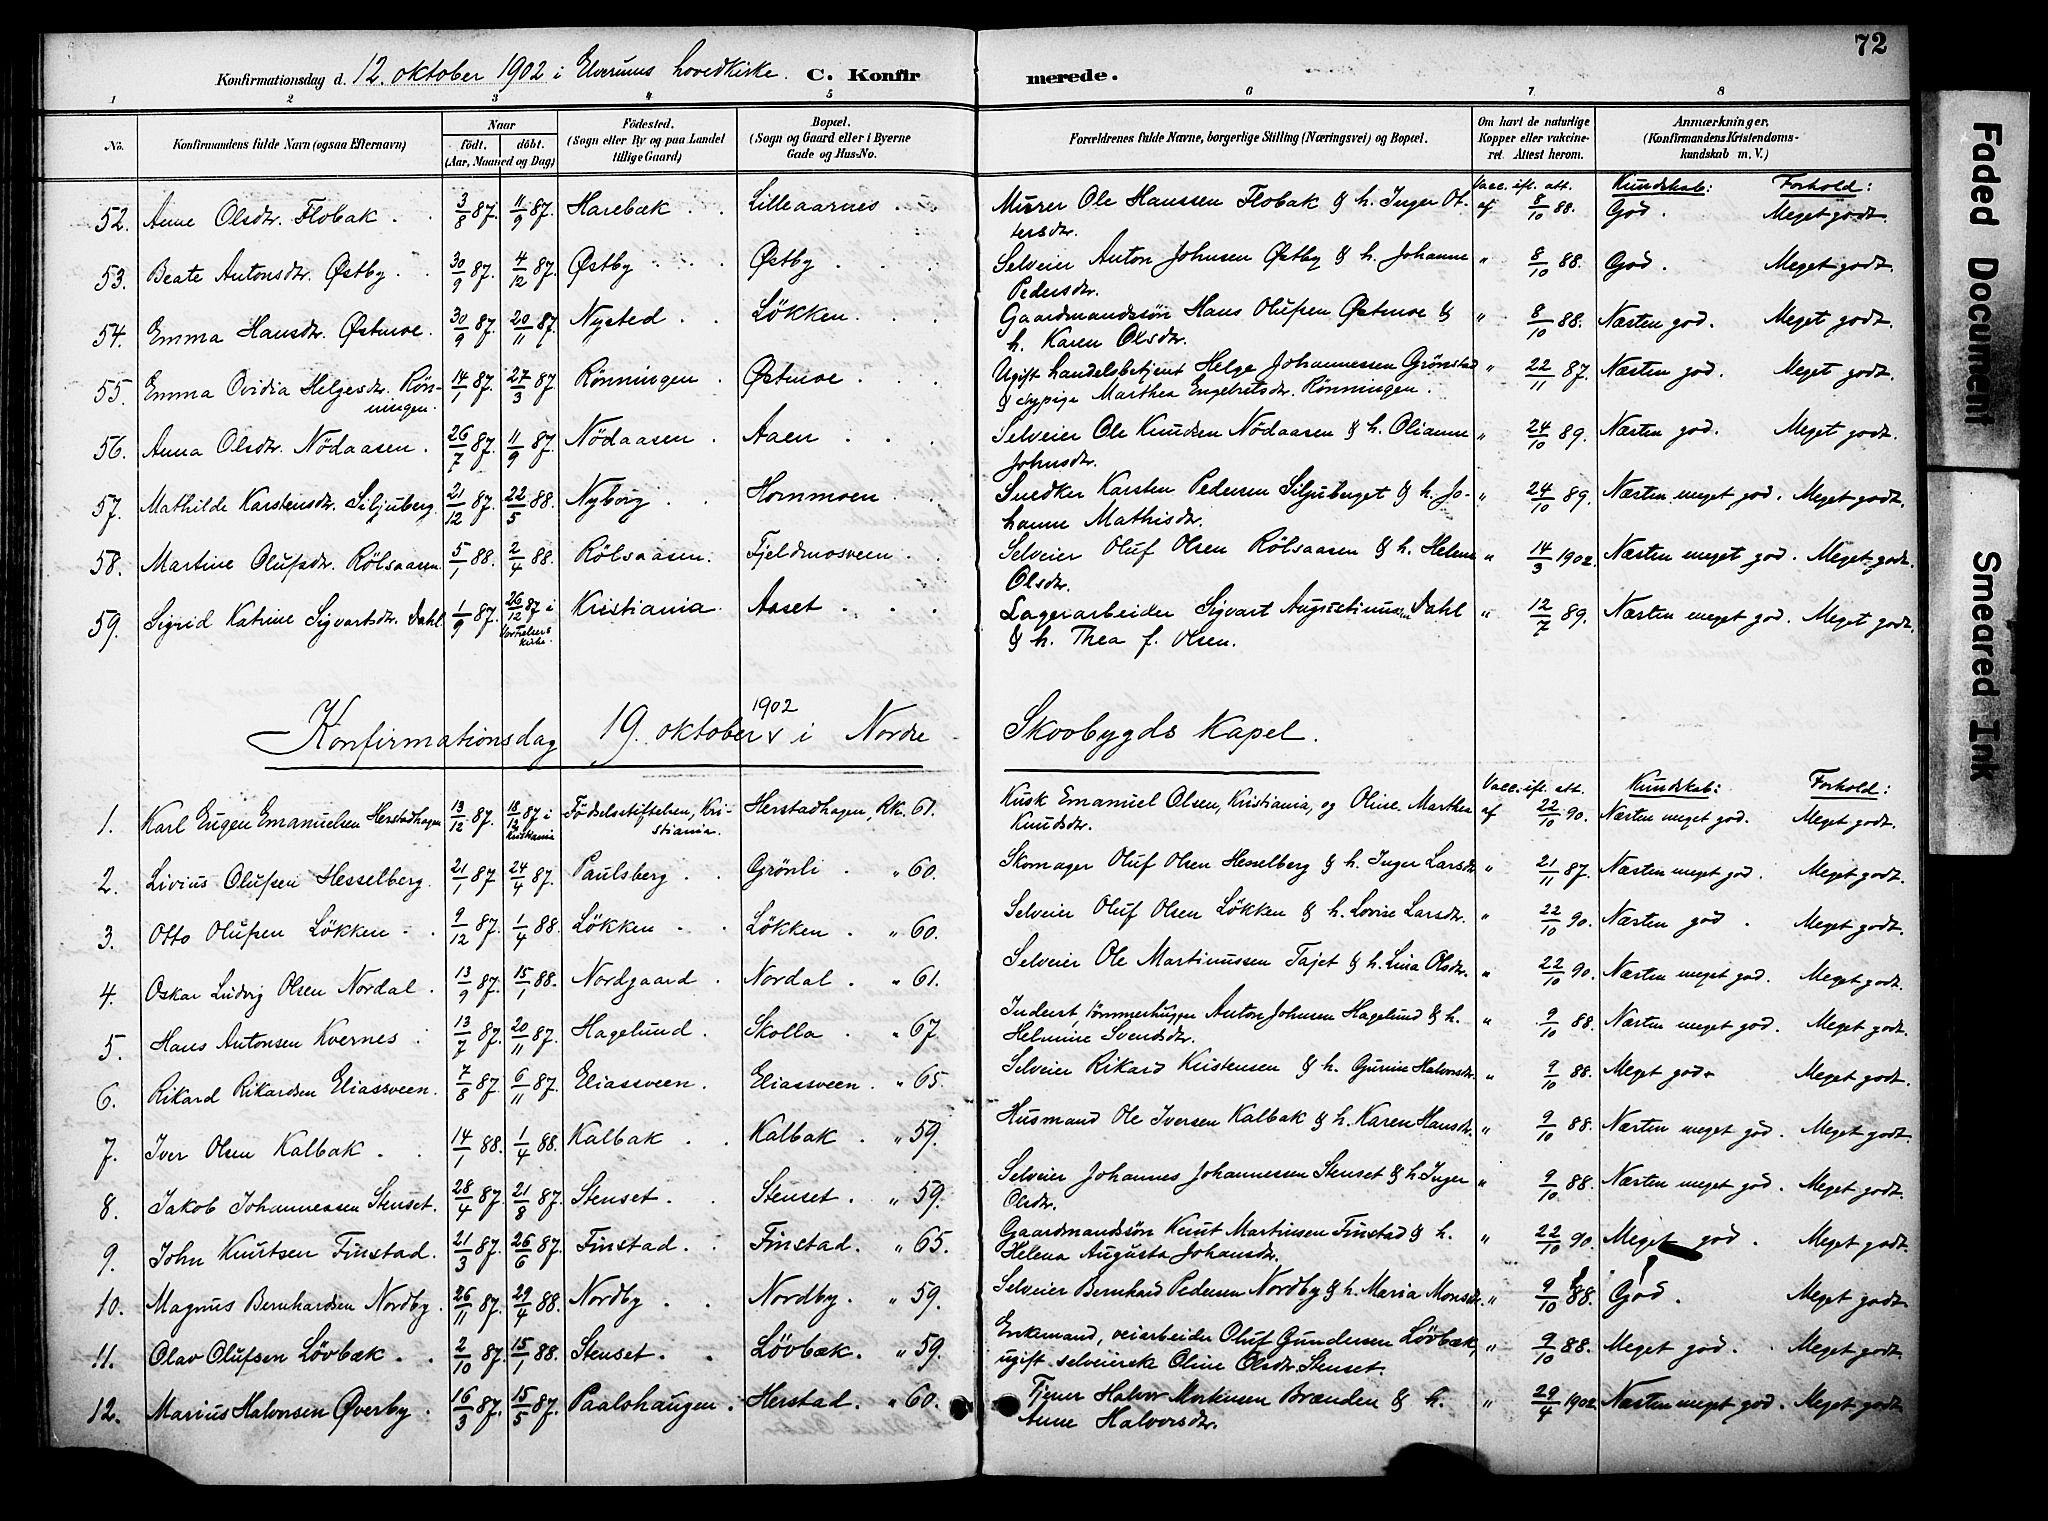 72
Konfirmationsdag d. 12. oktober 1902 i Elverums hovedkirke. C. Konfirmerede.
1 2 3 4 5 6 7 8
No. Konfirmandens fulde Navn (ogsaa Efternavn) Naar født. døbt. (Aar, Maaned og Dag) Fødested. (Sogn eller By og paa Landet tillige Gaard) Bopæl. (Sogn og Gaard eller i Byerne Gade og Hus-No. Forældrenes fulde Navne, borgerlige Stilling (Næringsvei) og Bopæl. Om havt de naturlige Kopper eller vakcineret. Attest herom. Anmærkninger. (Konfirmandens Kristendomskundskab m. V.)
Vacc. ifl. att. Kundskab: Forhold:
52. Anne Olsdtr. Flobak. 3/8 87. 11/9 87. Harebæk. Lilleaarnes. Murer Ole Hanssen Flobak & h. Inger Ottersdtr. af 8/10 88. God. Meget godt.
53. Beate Antonsdtr. Østby. 30/9 87. 4/12 87. Østby. Østby. Selveier Anton Johnsen Østby & h. Johanne Pedersdtr. " 8/10 88. God. Meget godt.
54. Emma Hansdtr. Østmoe. 30/9 87. 20/11 87. Nysted. Løkken. Gaardmandssøn Hans Olufsen Østmoe & h. Karen Olsdtr. " 8/10 88. Næsten god. Meget godt.
55. Emma Ovidia Helgesdtr. Rønningen. 14/1 87. 27/3 87 Rønningen. Østmoe. Ugift handelsbetjent Helge Johannessen Grønstad & pige Marthea Engebretsdtr. Rønningen. " 22/11 87. Næsten god. Meget godt.
56. Anna Olsdtr. Nødaasen. 26/7 87. 11/9 87. Nødaasen. Aaen. Selveier Ole Knudsen Nødaasen & h. Olianne Johnsdtr. " 24/10 89. Næsten god. Meget godt.
57. Mathilde Karstensdtr. Siljuberg. 21/12 87. 22/5 88. Nyborg. Hornmoen. Snedker Karsten Pedersen Siljuberget & h. Johanne Mathisdtr. " 24/10 89. Næsten meget god. Meget godt.
58. Martine Olufsdtr. Rølsaasen. 5/1 88. 2/4 88. Rølsaasen. Fjeldmosveen. Selveier Oluf Olsen Rølsaasen & h. Helene Olsdtr. " 14/3 1902. Næsten meget god. Meget godt.
59. Sigrid Katrine Sigvartsdtr. Dahl 1/9 87. 26/12 87 i kirke. Kristiania. Aaset. Lagerarbeider Sigvart Augustinussen Dahl & h. Thea f. Olsen. " 12/7 89. Næsten meget god. Meget godt.
Konfirmationsdag 19. oktober 1902 i Nordre Skovbygds Kapel.
Vacc. ifl. att. Kundskab: Forhold:
1. Karl Eugen Emanuelsen Herstadhagen 13/12 87. 18/12 87 i Kristiania Fødselsstiftelsen, Kristiania. Herstadhagen, Rk. 61. Kusk Emanuel Olsen, Kristiania, og Oline Marthea Knudsdtr. af 22/10 90. Næsten meget god. Meget godt.
2. Livius Olufsen Hesselberg. 21/1 87 24/4 87. Paulsberg. Grønli. " 60. Skomager Oluf Olsen Hesselberg & h. Inger Larsdtr. " 21/11 87. Næsten meget god. Meget godt.
3. Otto Olufsen Løkken. 9/12 87. 1/4 88. Løkken. Løkken. " 60. Selveier Oluf Olsen Løkken & h. Lovise Larsdtr. " 22/10 90. Næsten god. Meget godt.
4. Oskar Ludvig Olsen Nordal. 13/9 87. 15/1 88. Nordgaard. Nordal. " 61. Selveier Ole Martinussen Tajet & h. Lina Olsdtr. " 22/10 90. Næsten meget god. Meget godt.
5. Hans Antonsen Kvernes. 13/7 87. 20/11 87. Hagelund. Skolla. " 67. Inderst, tømmerhugger Anton Johnsen Hagelund & h. Helmine Svendsdtr. " 9/10 88. Næsten meget god. Meget godt.
6. Rikard Rikardsen Eliassveen. 7/8 87. 6/11 87. Eliassveen. Eliassveen. " 65. Selveier Rikard Kristensen & h. Gurine Halvorsdtr. " 9/10 88. Meget god. Meget godt.
7. Iver Olsen Kalbak. 14/1 88. 1/4 88. Kalbak. Kalbak. " 59. Husmand Ole Iversen Kalbak & h. Karen Hansdtr. " 9/10 88. Næsten meget god. Meget godt.
8. Jakob Johannessen Stenset. 28/4 87. 21/8 87. Stenset. Stenset. " 59. Selveier Johannes Johannessen Stenset & h. Inger Olsdtr. " 9/10 88. Næsten meget god. Meget godt.
9. John Knutsen Finstad. 21/3 87. 26/6 87. Finstad. Finstad. " 65. Gaardmandssøn Knut Martinsen Finstad & h. Helena Augusta Johansdtr. " 22/10 90. Meget god. Meget godt.
10. Magnus Bernhardsen Nordby. 26/11 87. 29/4 88. Nordby. Nordby. " 59. Selveier Bernhard Pedersen Nordby & h. Maria Monsdtr. " 9/10 88. God. Meget godt.
11. Olav Olufsen Løvbæk. 2/10 87. 15/1 88. Stenset. Løvbæk. " 59. Enkemand, veiarbeider Oluf Gundersen Løvbæk, ugift selveierske Oline Olsdtr. Stenset. " 9/10 88. Meget god. Meget godt.
12. Marius Halvorsen Øverby. 16/3 87. 15/5 87. Paalshaugen. Herstad. " 60. Tjener Halvor Mortensen Brænden & h. Anne Halvorsdtr. " 29/4 1902. Næsten meget god. Meget godt.
Faded Document
Smeared Ink